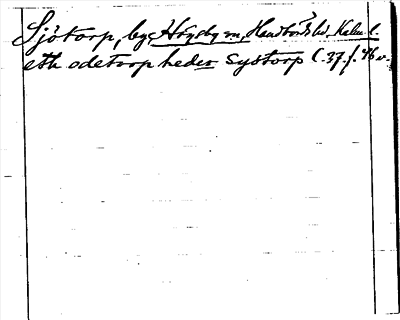 Sjötorp, by, Högsby sn, Handbörds hd, Kalm. l.
eth ödetorp heder Systorp C. 37. f. 46 v.